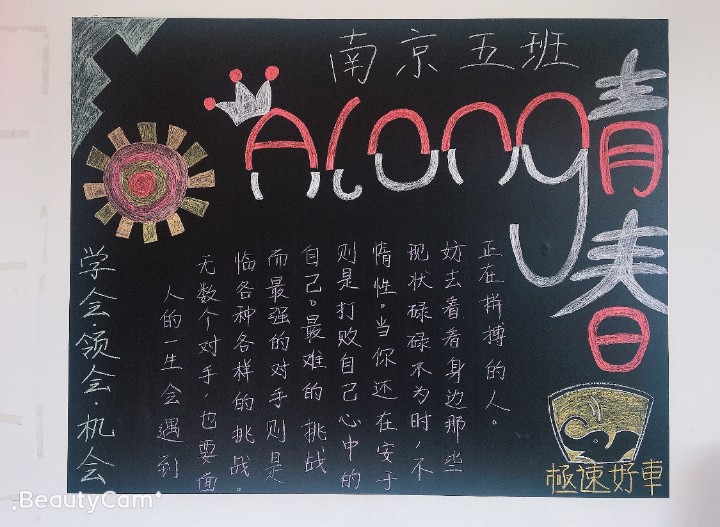 南京五班
Along
青春
学会·领会·机会
人的一生会遇到
无数个对手,也要面
临各种各样的挑战。
而最强的对手则是
自己。最难的挑战
则是打败自己心中的
惰性。当你还在安于
现状碌碌不为时,不
妨去看看身边那些
正在拼搏的人。
極速好車
BeautyCam